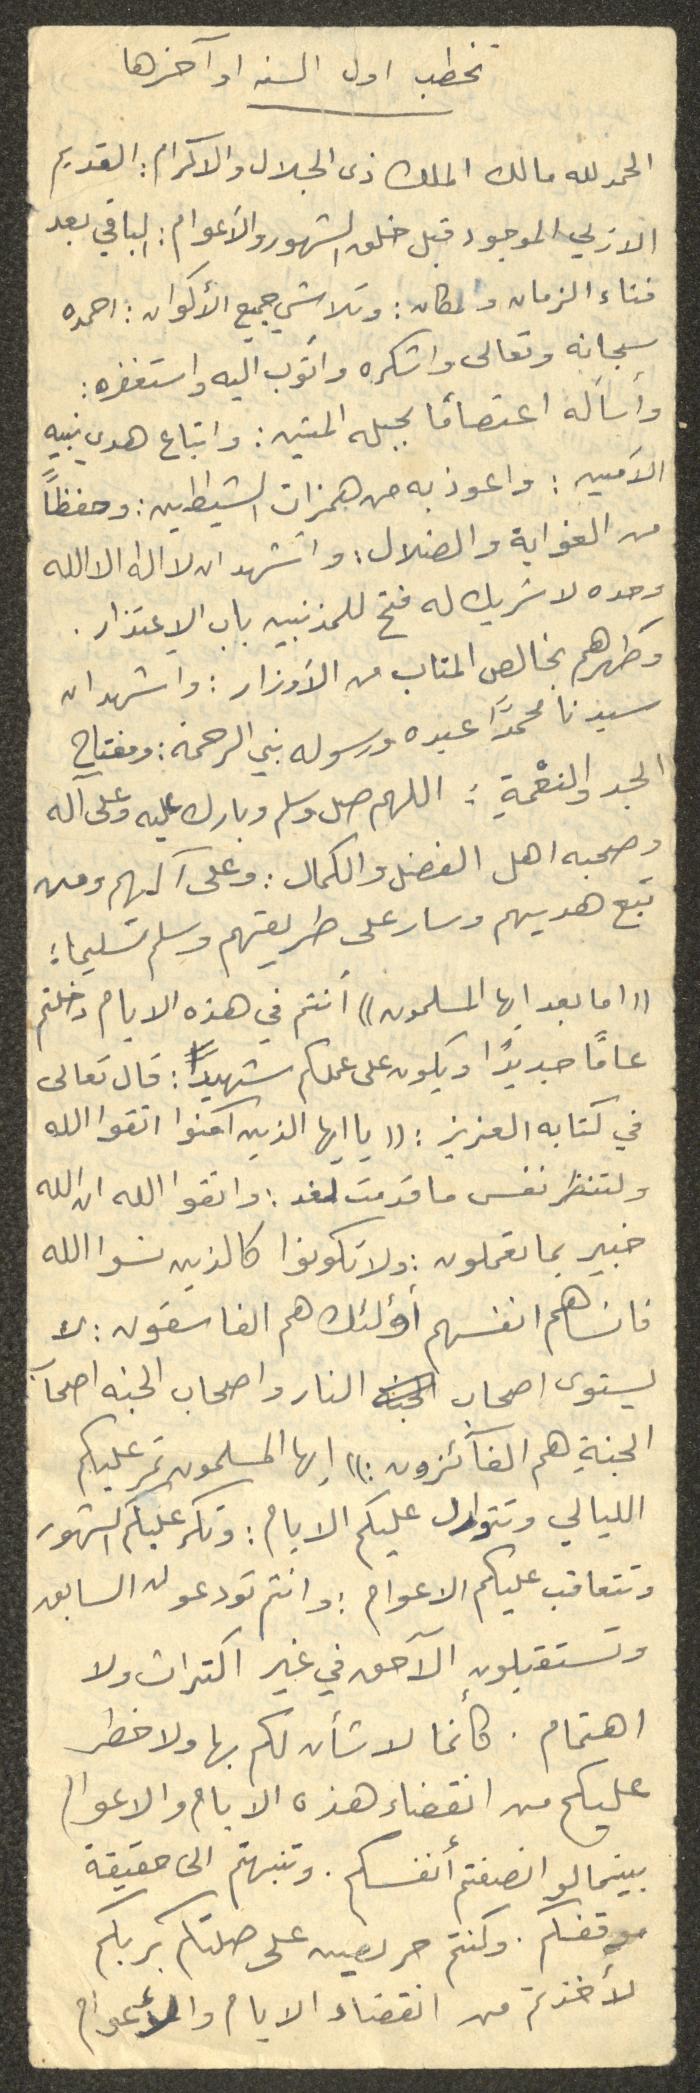 تخطب اول السنه او آخرها
الحمد لله مالك الملك ذى الجلال والاكرام : القديم
الازلي الموجود قبل خلق الشهور والأعوام : الباقي بعد
فناء الزمان والمكان : وتلاشي جميع الأكوان : احمده
سبحانه وتعالى واشكره واتوب اليه واستغفره :
وأسأله اعتصامًا بحبله المتين : واتباع هدي نبيه
الأمين : واعوذ به من همزات الشيطين : وحفظاً
من الغواية والضلال : واشهد ان لا اله الا الله
وحده لا شريك له فتح للمذنبين باب الاعتذار .
وطهرهم بخالص المتاب من الأوزار : واشهد ان
سيدنا محمدًا عبده ورسوله نبي الرحمة : ومفتاح
الجد والنعْمةِ : اللهم صل وسلم وبارك عليه وعلى آله
وصحبه اهل الفضل والكمال : وعلى آلهم ومن
تبع هديهم وسار على طريقتهم وسلم تسليما :
(( اما بعد ايها المسلمون )) أنتم في هذه الايام دخلتم
عامًا جديدًا ويكون على عملكم شهيدًا : قال تعالى
في كتابه العزيز : (( يا ايها الذين آمنوا اتقوا الله
ولتنظر نفس ما قدمت لغد : واتقوا الله ان الله
خبير بما تعملون : ولا تكونوا كالذين نسوا الله
فانساهم انفسهم أولئك هم الفاسقون : لا
يستوى اصحاب الجنة النار واصحاب الجنه اصحاب
الجنةِ هم الفآئزون : )) ايها المسلمون تمر عليكم
الليالي وتتوالى عليكم الايام : وتكر عليكم الشهور
وتتعاقب عليكم الاعوام : وانتم تودعون السابق
وتستقبلون الآحق في غير اكتراث ولا
اهتمام . كأنما لا شأن لكم بها ولا خطر
عليكم من انقضاء هذه الايام والاعوام
بينما لو انصفتم أنفسكم . وتنبهتم الى حقيقة
موقفكم . وكنتم حريصين على صلتكم بربكم
لأخذتم من انقضاء الايام والأعوام